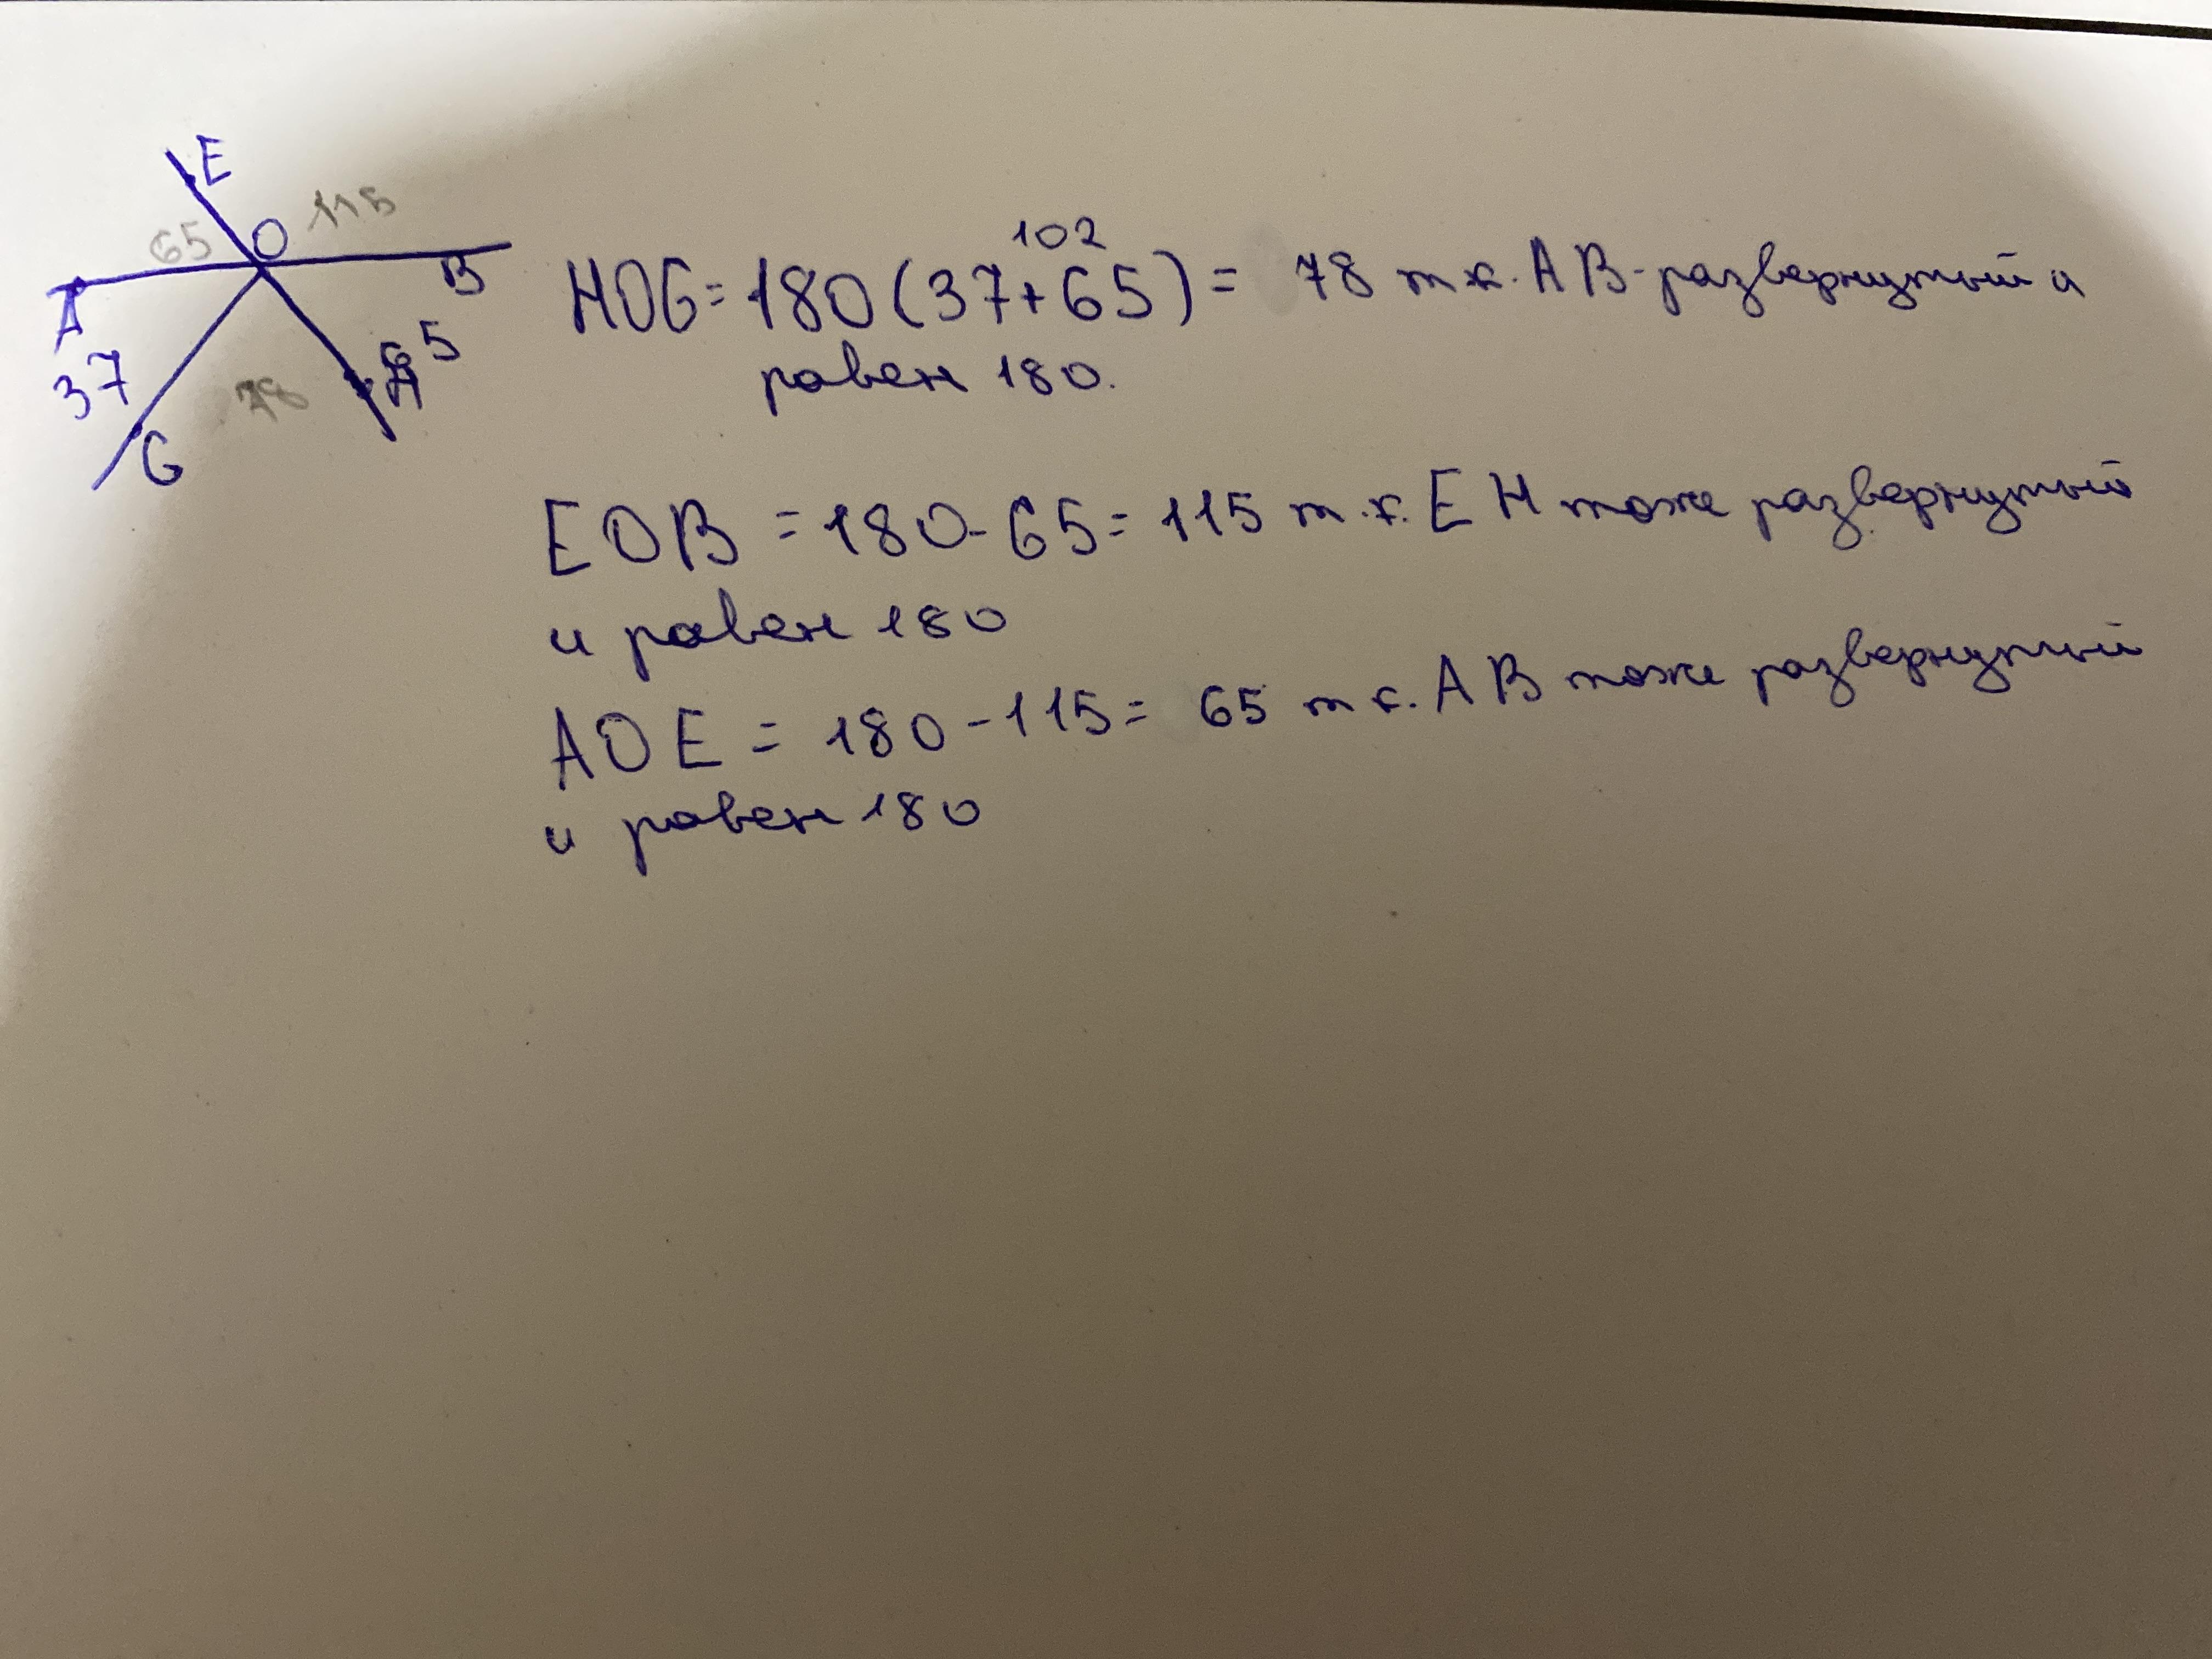 E
65
O
115
A
B
37
65
H
78
G
102
HOG = 180 (37+65) = 78 т.к. AB-развернутый и
равен 180.
EOB = 180-65 = 115 т.к. EH тоже развернутый
и равен 180
AOE = 180-115 = 65 т.к. AB тоже развернутый
и равен 180